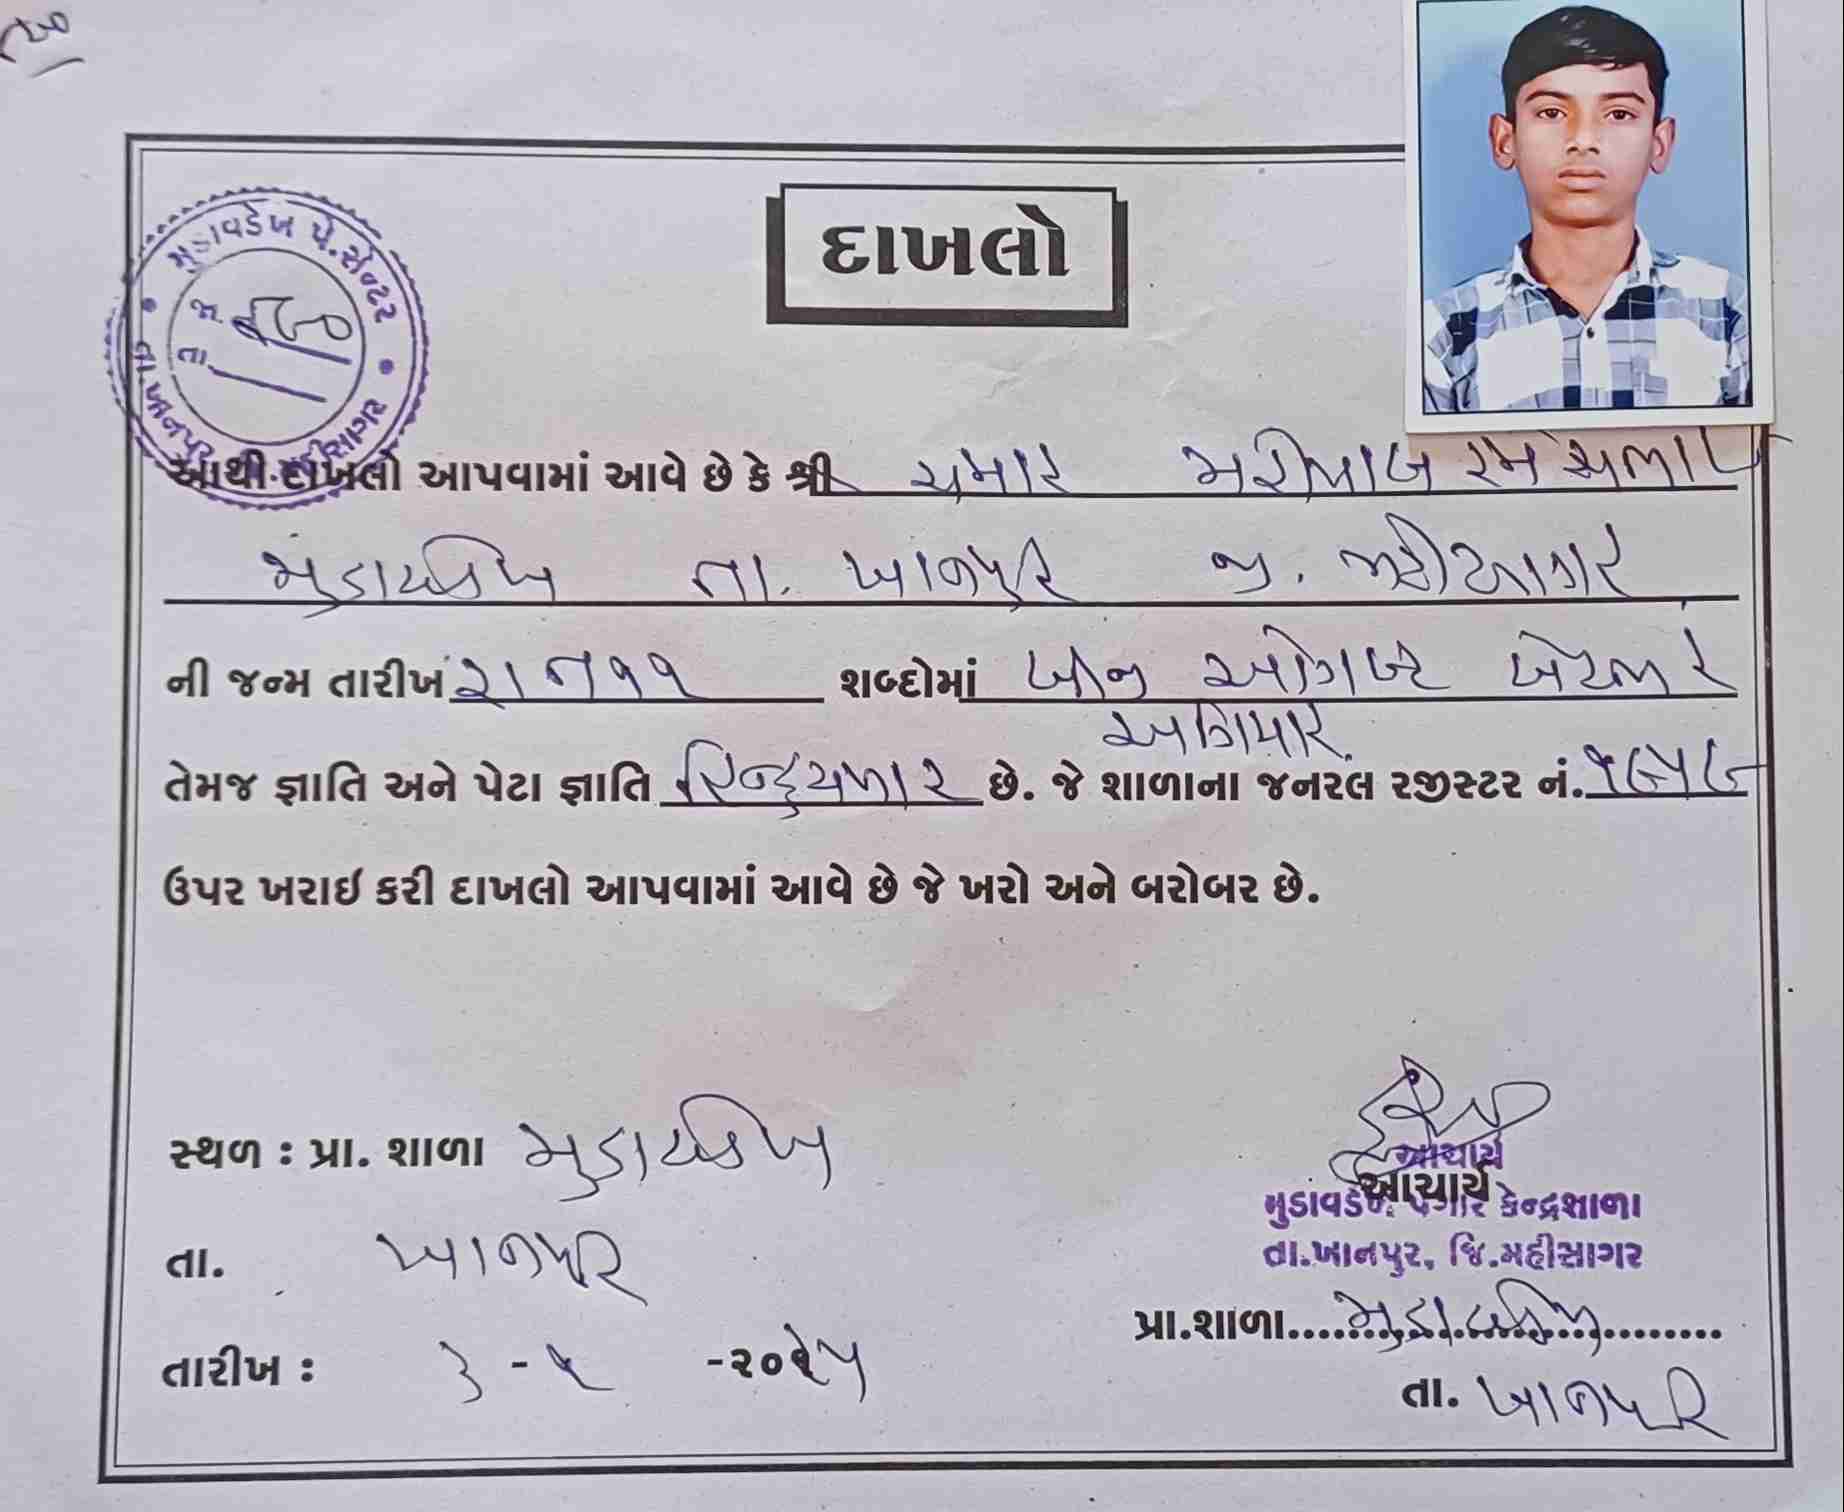 મુડાવડેખ પે.સેન્ટર
જા. ૬૮૦
તા.
તા.ખાનપુર મહીસાગર
દાખલો
આથી દાખલો આપવામાં આવે છે કે શ્રી ચમાર રમેશભાઇ
મુડાવડેખ તા. ખાનપુર જી. મહીસાગર
ની જન્મ તારીખ શબ્દોમાં બીજી ઓગષ્ટ બે હજાર
અગિયાર
તેમજ જ્ઞાતિ અને પેટા જ્ઞાતિ હિન્દુચમાર છે. જે શાળાના જનરલ રજીસ્ટર નં. ૧૯૫૯
ઉપર ખરાઇ કરી દાખલો આપવામાં આવે છે જે ખરો અને બરોબર છે.
સ્થળ : પ્રા. શાળા મુડાવડેખ
તા. ખાનપુર
તારીખ : ૩ - ૫ -૨૦૨૫
આચાર્ય
આચાર્ય
મુડાવડેખ પગાર કેન્દ્રશાળા
તા.ખાનપુર, જિ.મહીસાગર
પ્રા.શાળા મુડાવડેખ
તા. ખાનપુર